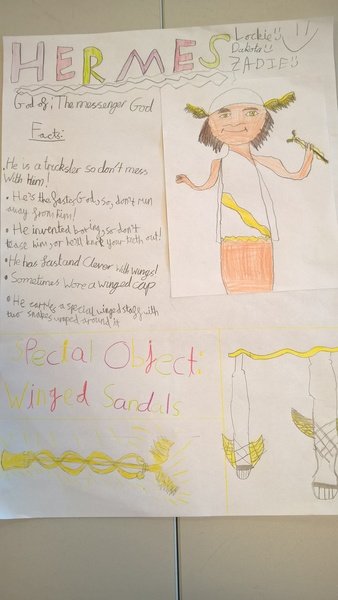 HERMES
Lockie
Dakota
ZADIE
God of: The messenger God
Facts:
• He is a trickster so don't mess
with him!
• He's the faster God, so, don't run
away from him!
• He invented boxing, so don't
tease him, or he'll knock your teeth out!
• He has fast and Clever with wings!
• Sometimes Wore a winged cap
• He carries a special winged staff with
two snakes wraped around it
Special Object:
Winged Sandals